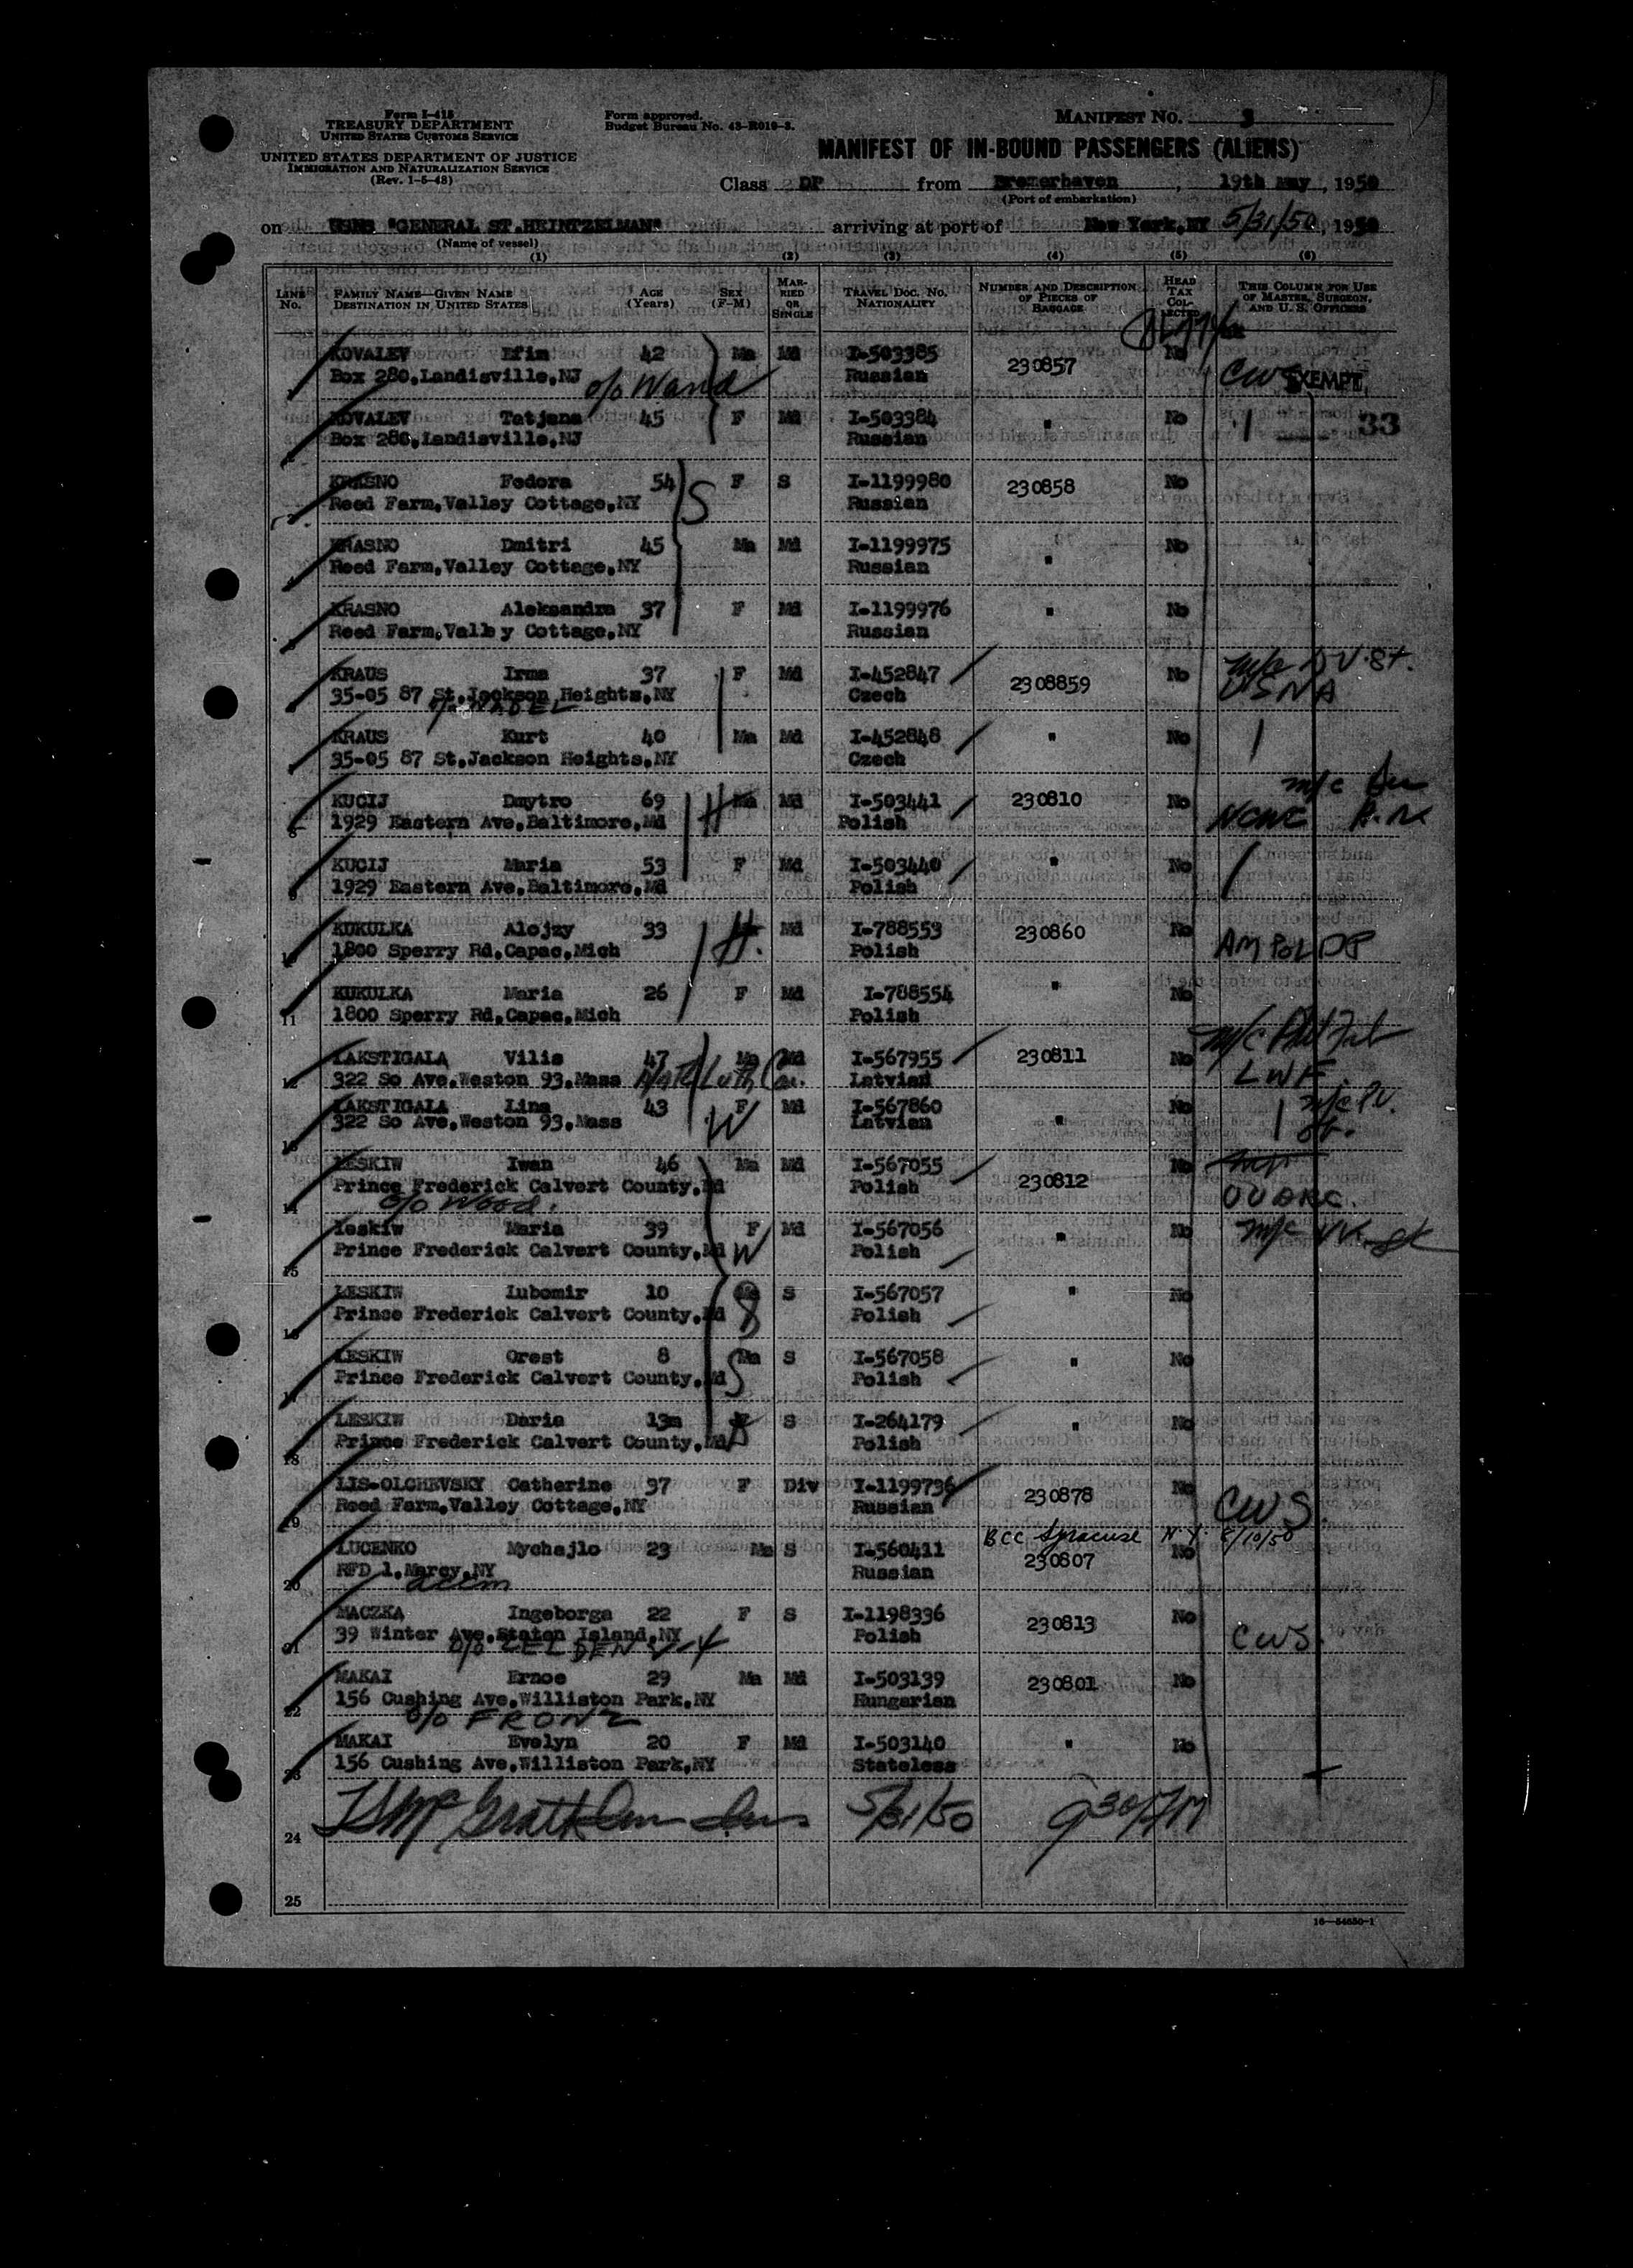 Form I-415
TREASURY DEPARTMENT
UNITED STATES CUSTOMS SERVICE
UNITED STATES DEPARTMENT OF JUSTICE
IMMIGRATION AND NATURALIZATION SERVICE
(Rev. 1-5-48)
Form approved.
Budget Bureau No. 43-R019-3.
MANIFEST NO. 3
MANIFEST OF IN-BOUND PASSENGERS (ALIENS)
Class DP from Bremerhaven, 19th May, 1950
(Port of embarkation)
on USNS "GENERAL ST.HEINTZELMAN" arriving at port of New York,NY 5/31/50, 1950
(Name of vessel)
(1) (2) (3) (4) (5) (6)
LINE No. FAMILY NAME—GIVEN NAME DESTINATION IN UNITED STATES AGE (Years) SEX (F-M) MARRIED OR SINGLE TRAVEL DOC. NO. NATIONALITY NUMBER AND DESCRIPTION OF PIECES OF BAGGAGE HEAD TAX COLLECTED THIS COLUMN FOR USE OF MASTER, SURGEON, AND U. S. OFFICERS
KOVALEV Efim 42 Ma Md I-503385 230857 No
Box 280,Landisville,NJ c/o Wand Russian CWS EXEMPT
KOVALEV Tatjana 45 F Md I-503384 " No 33
Box 280,Landisville,NJ Russian
KRASNO Fedora 54 S F S I-1199980 230858 No
Reed Farm,Valley Cottage,NY Russian
KRASNO Dmitri 45 Ma Md I-1199975 " No
Reed Farm,Valley Cottage,NY Russian
KRASNO Aleksandra 37 F Md I-1199976 " No
Reed Farm,Valley Cottage,NY Russian
KRAUS Irma 37 F Md I-452847 2308859 No
35-05 87 St.Jackson Heights,NY Czech USNA
KRAUS Kurt 40 Ma Md I-452848 " No
35-05 87 St.Jackson Heights,NY Czech
KUCIJ Dmytro 69 H Ma Md I-503441 230810 No m/c
1929 Eastern Ave,Baltimore,Md Polish NCWC
KUCIJ Maria 53 F Md I-503440 " No
9 1929 Eastern Ave,Baltimore,Md Polish
KUKULKA Alojzy 33 H. Md I-788553 230860 No
10 1800 Sperry Rd,Capac,Mich Polish AM POL DP
KUKULKA Maria 26 F Md I-788554 " No
11 1800 Sperry Rd,Capac,Mich Polish
LAKSTIGALA Vilis 47 Ma Md I-567955 230811 No m/c
12 322 So Ave,Weston 93,Mass Natl Luth Co. Latvian LWF
LAKSTIGALA Lina 43 F Md I-567860 " No
13 322 So Ave,Weston 93,Mass W Latvian
LESKIW Iwan 46 Ma Md I-567055 230812 No
Prince Frederick Calvert County,Md Polish
14 c/o Wood.
Leskiw Maria 39 F Md I-567056 " No m/c
15 Prince Frederick Calvert County,Md W Polish
LESKIW Lubomir 10 Ma S I-567057 " No
16 Prince Frederick Calvert County,Md S Polish
LESKIW Orest 8 Ma S I-567058 " No
17 Prince Frederick Calvert County,Md S Polish
LESKIW Daria 13m F S I-264179 " No
18 Prince Frederick Calvert County,Md Polish
LIS-OLCHEVSKY Catherine 37 F Div I-1199796 230878 No
19 Reed Farm,Valley Cottage,NY Russian CWS.
BCC Syracuse N.Y. 8/10/50
LUCENKO Mychajlo 23 Ma S I-560411 230807 No
20 RFD 1,Marcy,NY Russian
MACZKA Ingeborga 22 F S I-1198336 230813 No
21 39 Winter Ave,Staten Island,NY Polish CWS.
MAKAI Ernoe 29 Ma Md I-503139 230801 No
22 156 Cushing Ave,Williston Park,NY Hungarian
c/o FRONZ
MAKAI Evelyn 20 F Md I-503140 " No
23 156 Cushing Ave,Williston Park,NY Stateless
24 McGrath 5/31/50 930
25
16—54650-1